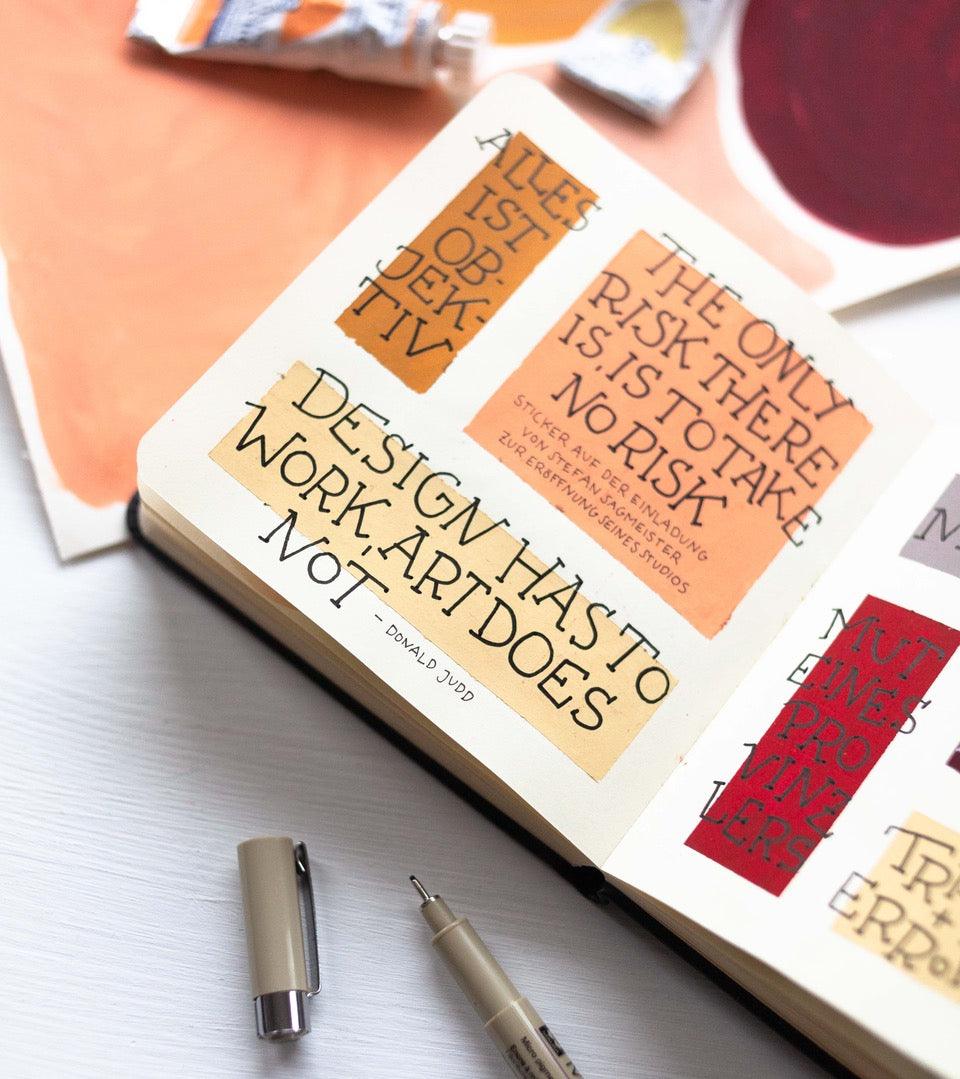 ALLES
IST
OB-
JEK-
TIV
THE ONLY
RISK THERE
IS, IS TO TAKE
NO RISK
STICKER AUF DER EINLADUNG
VON STEFAN SAGMEISTER
ZUR ERÖFFNUNG SEINES STUDIOS
DESIGN HAS TO
WORK, ART DOES
NOT
– DONALD JUDD
MUT
EINES
PRO
VINZ
LERS
+
Micro